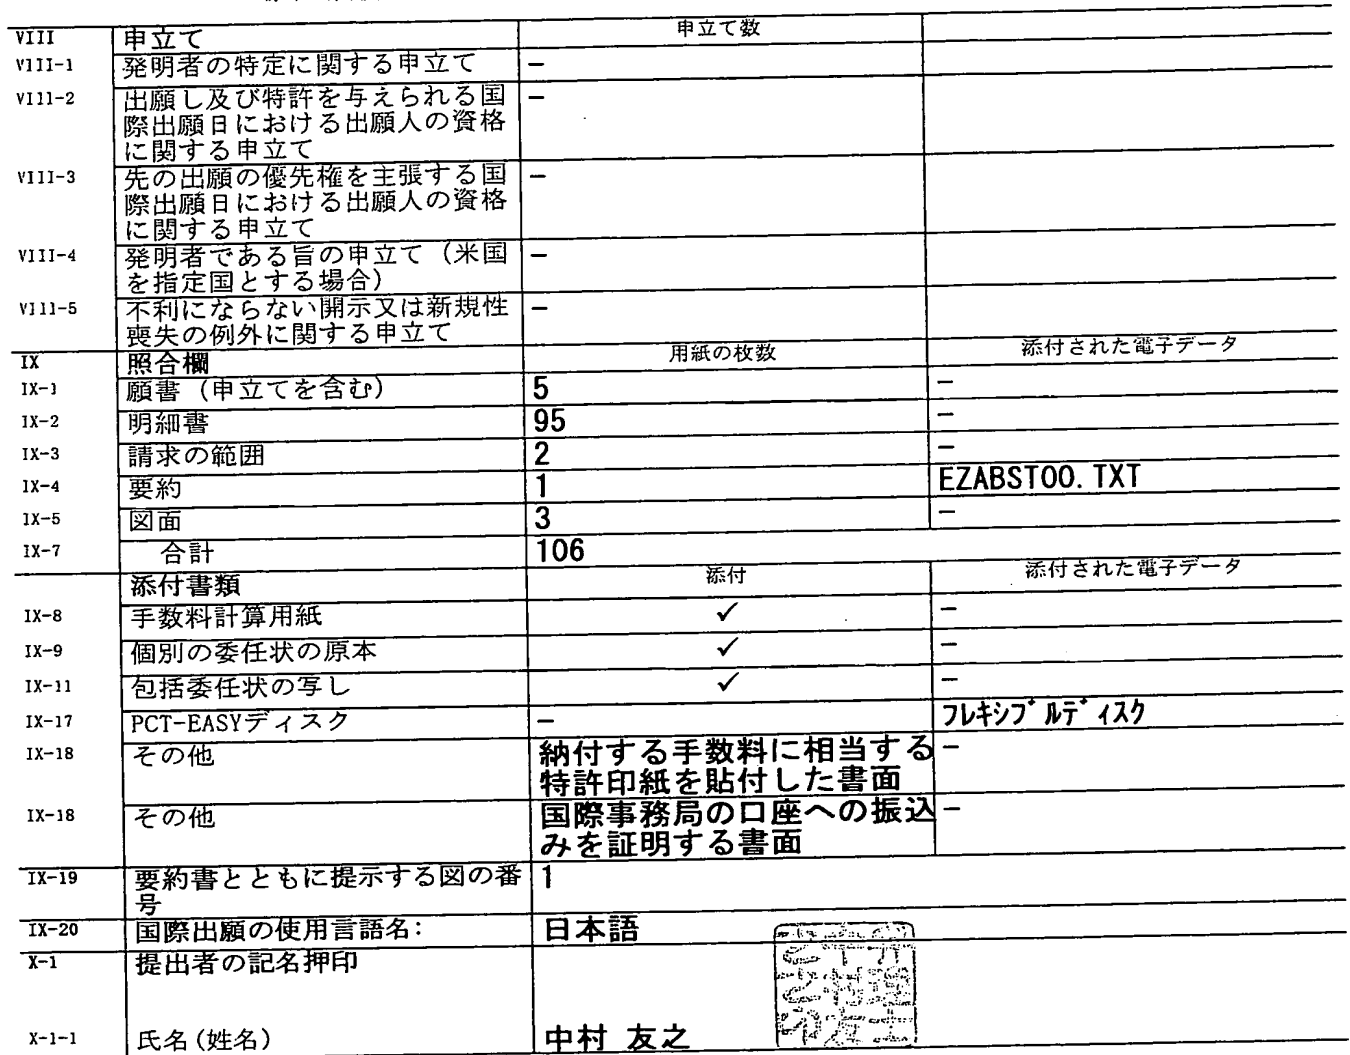 VIII 申立て 申立て数
VIII-1 発明者の特定に関する申立て -
VIII-2 出願し及び特許を与えられる国 -
際出願日における出願人の資格
に関する申立て
VIII-3 先の出願の優先権を主張する国 -
際出願日における出願人の資格
に関する申立て
VIII-4 発明者である旨の申立て（米国 -
を指定国とする場合）
VIII-5 不利にならない開示又は新規性 -
喪失の例外に関する申立て
IX 照合欄 用紙の枚数 添付された電子データ
IX-1 願書（申立てを含む） 5 -
IX-2 明細書 95 -
IX-3 請求の範囲 2 -
IX-4 要約 1 EZABST00.TXT
IX-5 図面 3 -
IX-7 合計 106
添付書類 添付 添付された電子データ
IX-8 手数料計算用紙 ✓ -
IX-9 個別の委任状の原本 ✓ -
IX-11 包括委任状の写し ✓ -
IX-17 PCT-EASYディスク - フレキシブルディスク
IX-18 その他 納付する手数料に相当する -
特許印紙を貼付した書面
IX-18 その他 国際事務局の口座への振込 -
みを証明する書面
IX-19 要約書とともに提示する図の番 1
号
IX-20 国際出願の使用言語名： 日本語
X-1 提出者の記名押印
X-1-1 氏名(姓名) 中村 友之